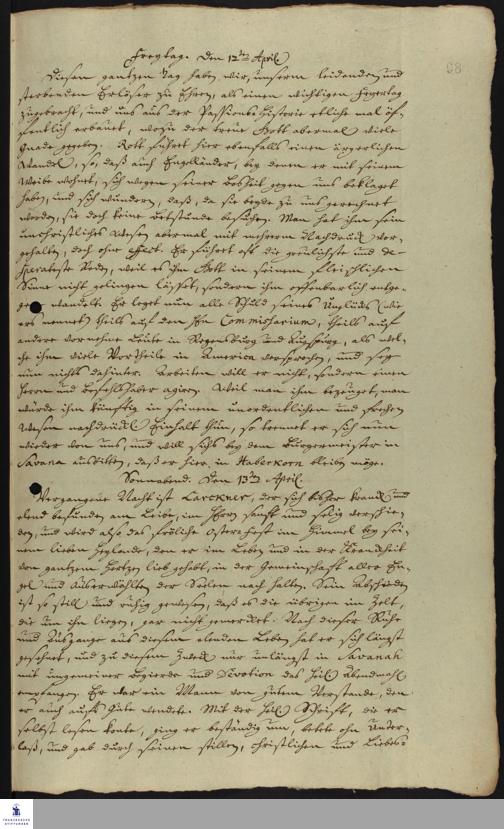 68
Freytag. Den 12ten April.
Diesen gantzen Tag haben wir, unserm leidenden und
sterbenden Erlöser zu Ehren, als einen wichtigen Feyertag
zugebracht, und uns aus der Passions-Historie etliche mal öf-
fentlich erbauet, wozu der treue Gott abermal viele
Gnade gegeben. Rott führet hier ebenfalls einen ärgerlichen
Wandel, so, daß auch Engelländer, bey denen er mit seinem
Weibe wohnet, sich wegen seiner Bosheit gegen uns beklaget
haben, und sich wundern, daß, da sie beyde zu uns gerechnet
worden, sie doch keine Betstunde besuchen. Man hat ihm sein
unchristliches Wesen abermal mit mehrerm Nachdruck vor-
gehalten, doch ohne effect. Er führet oft die greulichste und de-
sperateste Reden, weil es ihm Gott in seinem fleischlichen
Sinne nicht gelingen lässet, sondern ihm offenbarlich entge-
gen wandelt. Er leget nun alle Schuld seines Unglücks (wie
ers nennet) theils auf den Hn Commissarium, theils auf
andere vornehme Leute in Regenspurg und Augspurg, als wel-
che ihm viele Vortheile in America versprochen, und sey
nun nichts dahinter. Arbeiten will er nicht, sondern einen
Herrn und Befehlshaber agiren. Weil man ihm bezeuget, man
würde ihm künftig in seinem unordentlichen und frechen
Wesen nachdrückl. Einhalt thun, so trennet er sich nun
wieder von uns, und will sichs bey dem Bürgermeister in
Savana ausbitten, daß er hier, in Habercorn bleiben möge.
Sonnabend. Den 13ten April.
Vergangene Nacht ist Lackner, der sich bisher kranck und
elend befunden am Leibe, im HErrn sanft und selig verschie-
den, und wird also das fröliche Osterfest im Himmel bey sei-
nem lieben Heylande, den er im Leben und in der Kranckheit
von gantzem Hertzen lieb gehabt, in der Gemeinschafft aller En-
gel und Auserwählten der Seelen nach halten. Sein Abschieden
ist so still und ruhig gewesen, daß es die übrigen im Zelt,
die um ihn liegen, gar nicht gemercket. Nach dieser Ruhe
und Ausgange aus diesem elenden Leben hat er sich längst
gesehnet, und zu diesem Zweck nur unlängst in Savanah
mit ungemeiner Begierde und Devotion das heil. Abendmahl
empfangen. Er war ein Mann von gutem Verstande, den
er auch aufs Gute wendete. Mit der heil. Schrift, die er
selbst lesen konte, ging er beständig um, betete ohn Unter-
laß, und gab durch seinen stillen, christlichen und Liebes-
FRANCKESCHE
STIFTUNGEN